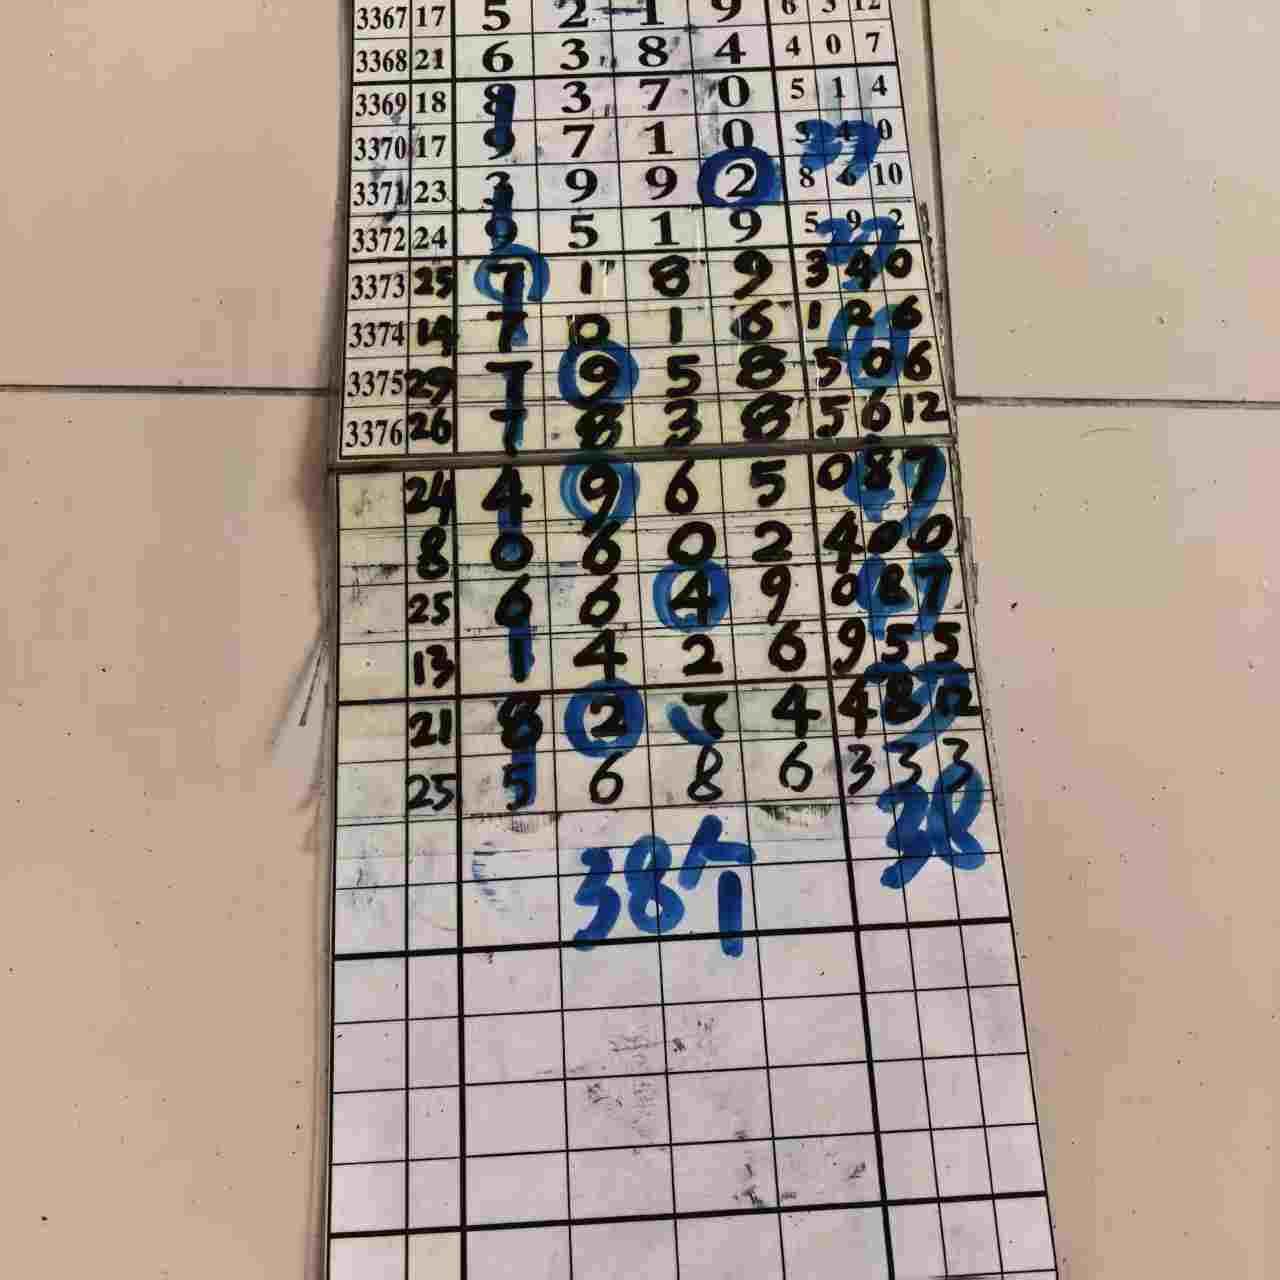 3367 17 5 2 1 9 6 3 12
3368 21 6 3 8 4 4 0 7
3369 18 8 3 7 0 5 1 4
3370 17 9 7 1 0 3 4 0
3371 23 3 9 9 2 8 6 10
3372 24 9 5 1 9 5 9 2
3373 25 7 1 8 9 3 4 0
3374 14 7 0 1 6 1 2 6
3375 29 7 9 5 8 5 0 6
3376 26 7 8 3 8 5 6 12
24 4 9 6 5 0 8 7
8 0 6 0 2 4 0 0
25 6 6 4 9 0 8 7
13 1 4 2 6 9 5 5
21 8 2 7 4 4 8 12
25 5 6 8 6 3 3 3
38
38个